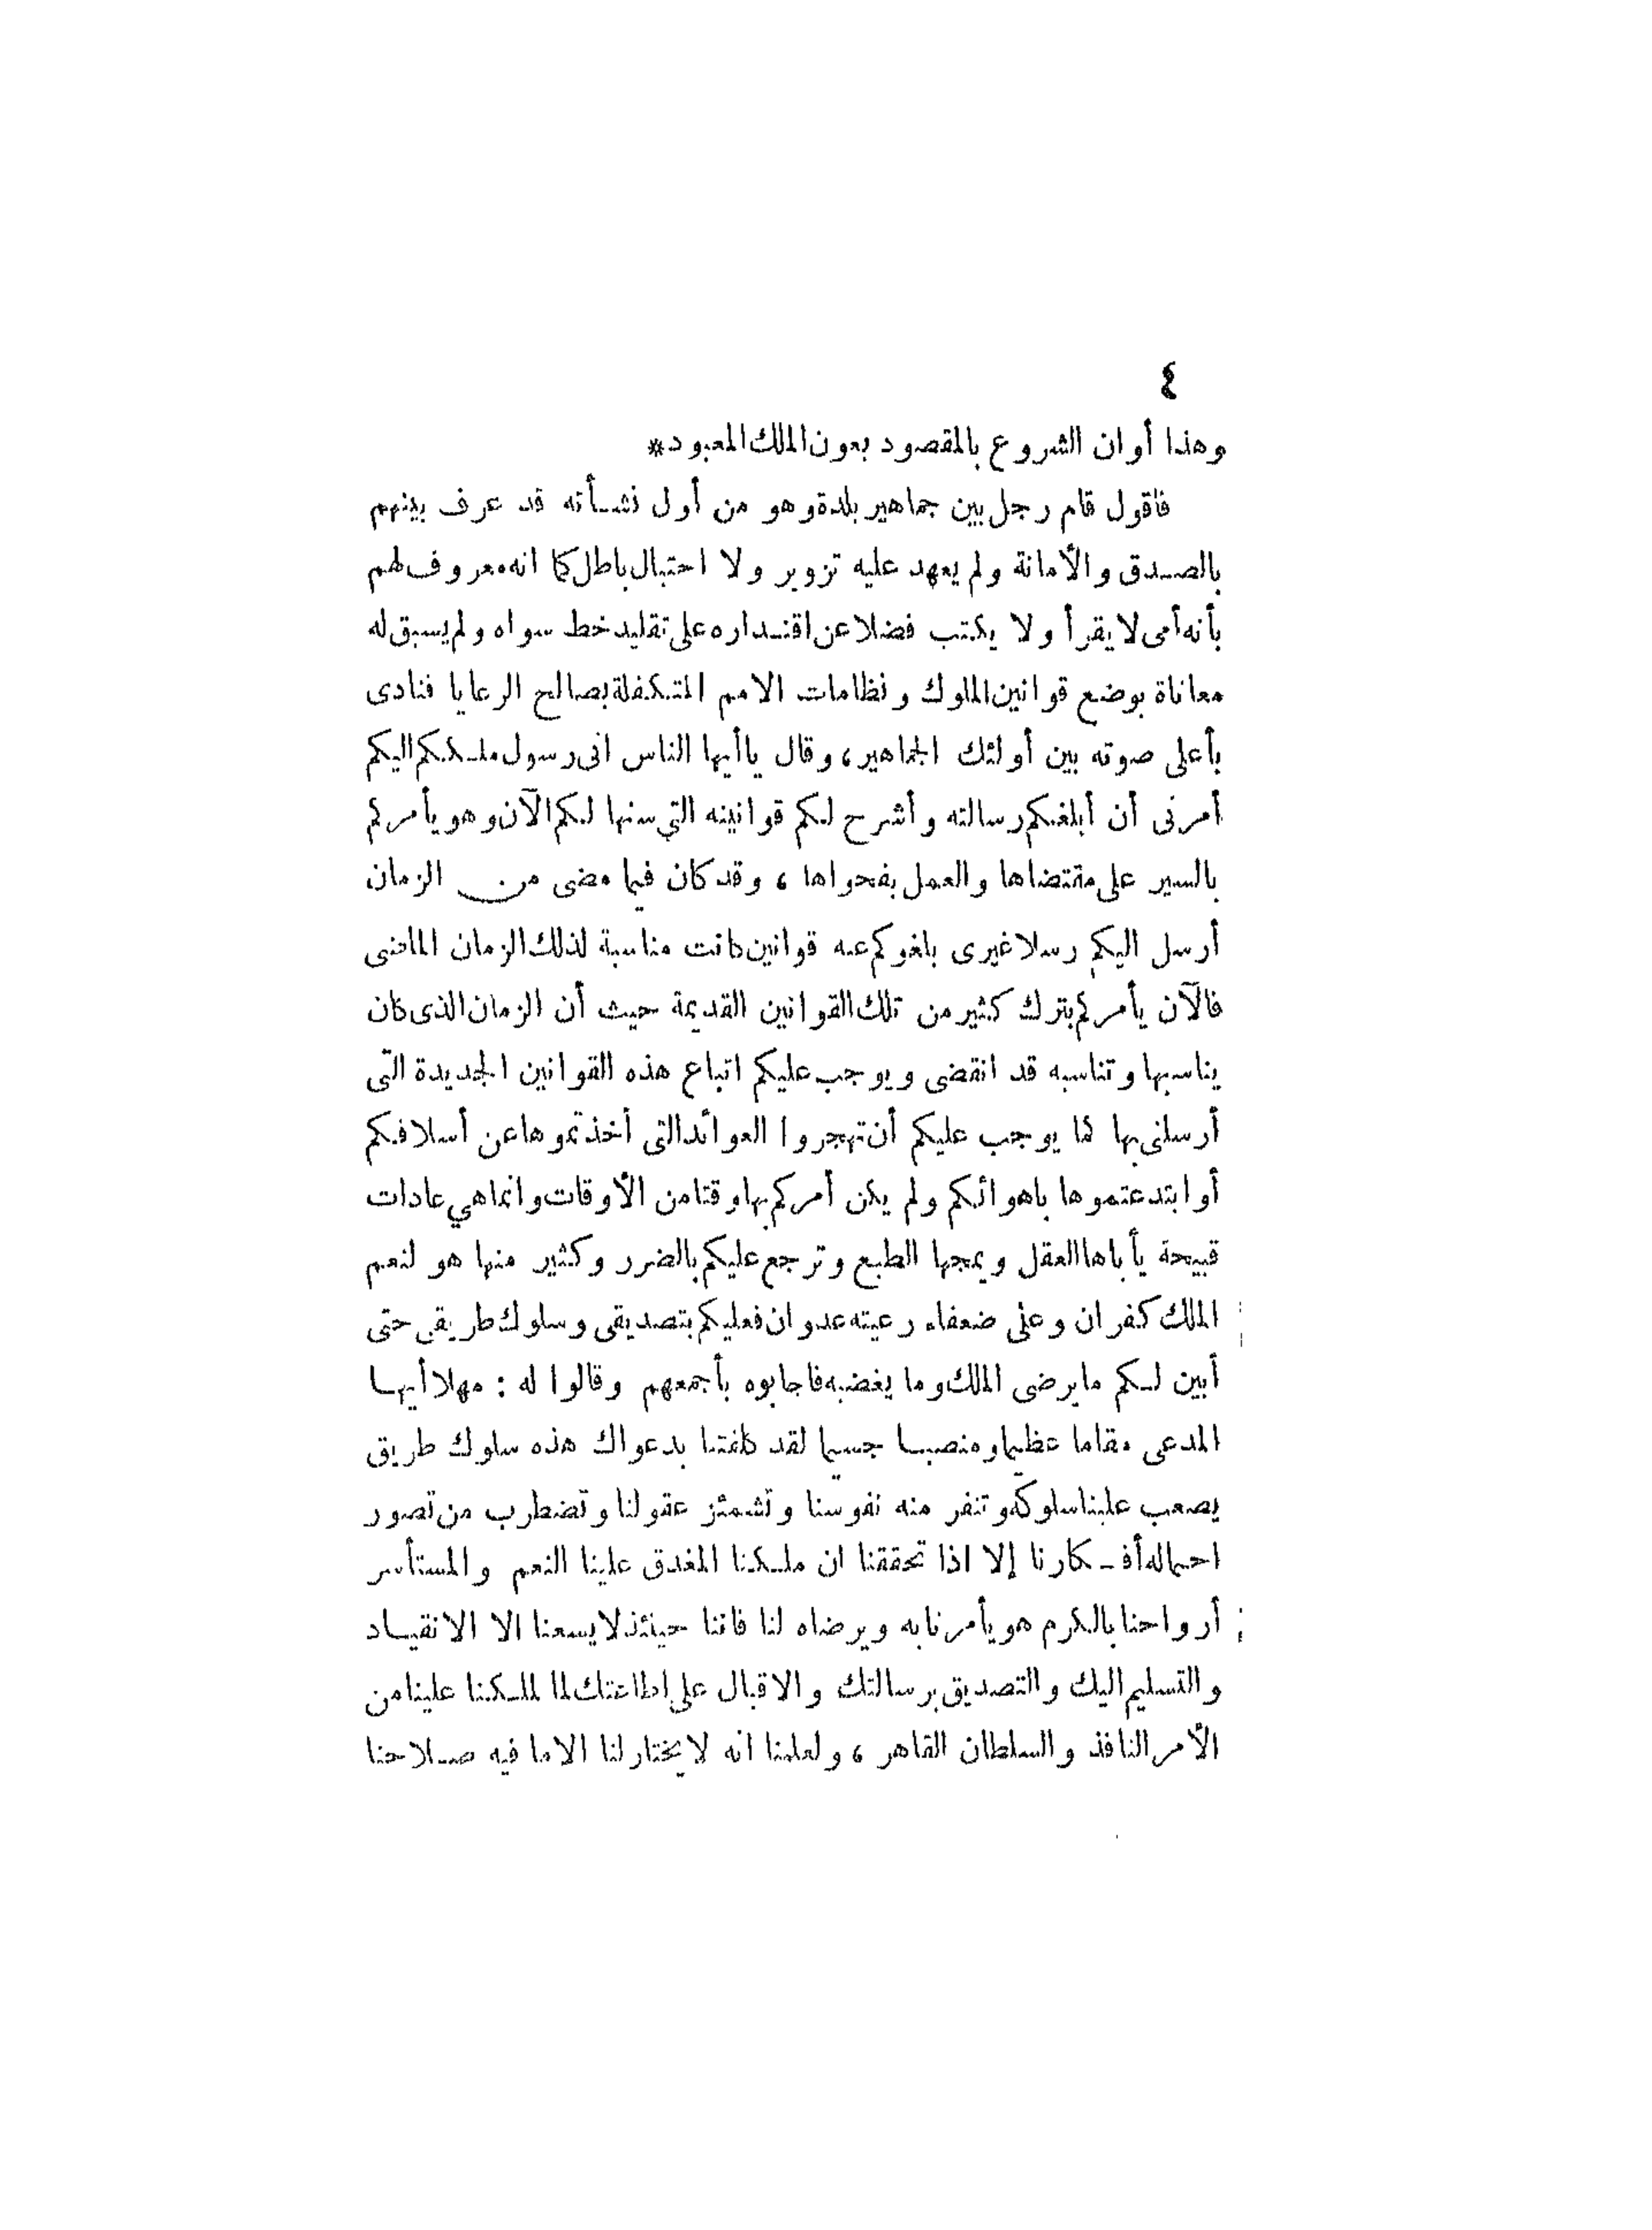 ٤
وهذا أوان الشروع بالمقصود بعون الملك المعبود*
فاقول قام رجل بين جماهير بلدة وهو من أول نشأته قد عرف بينهم
بالصدق والأمانة ولم يعهد عليه تزوير ولا احتيال باطل كما انه معروف لهم
بأنه أمى لا يقرأ ولا يكتب فضلا عن اقتداره على تقليد خط سواه ولم يسبق له
معاناة بوضع قوانين الملوك ونظامات الامم المتكفلة بصالح الرعايا فنادى
بأعلى صوته بين أولئك الجماهير، وقال يا أيها الناس انى رسول ملككم اليكم
أمرنى أن أبلغكم رسالته وأشرح لكم قوانينه التي سنها لكم الآن وهو يأمركم
بالسير على مقتضاها والعمل بفحواها، وقد كان فيما مضى من الزمان
أرسل اليكم رسلا غيرى بلغوكم عنه قوانين كانت مناسبة لذلك الزمان الماضى
فالآن يأمركم بترك كثير من تلك القوانين القديمة حيث أن الزمان الذى كان
يناسبها وتناسبه قد انقضى ويوجب عليكم اتباع هذه القوانين الجديدة التى
أرسلنى بها كما يوجب عليكم أن تهجروا العوائد التى أخذتموها عن أسلافكم
أو ابتدعتموها باهوائكم ولم يكن أمركم بها وقتا من الأوقات وانما هي عادات
قبيحة يأباها العقل ويمجها الطبع وترجع عليكم بالضرر وكثير منها هو لنعم
الملك كفران وعلى ضعفاء رعيته عدوان فعليكم بتصديقى وسلوك طريقى حتى
أبين لكم ما يرضى الملك وما يغضبه فاجابوه بأجمعهم وقالوا له : مهلا أيها
المدعى مقاما عظيما ومنصبا جسيما لقد كلفتنا بدعواك هذه سلوك طريق
يصعب علينا سلوكه وتنفر منه نفوسنا وتشمئز عقولنا وتضطرب من تصور
احتماله أفكارنا إلا اذا تحققنا ان ملكنا المغدق علينا النعم والمستأسر
أرواحنا بالكرم هو يأمرنا به ويرضاه لنا فاننا حينئذ لا يسعنا الا الانقياد
والتسليم اليك والتصديق برسالتك والاقبال على اطاعتك لما لملكنا علينا من
الأمر النافذ والسلطان القاهر، ولعلمنا انه لا يختار لنا الا ما فيه صلاحنا